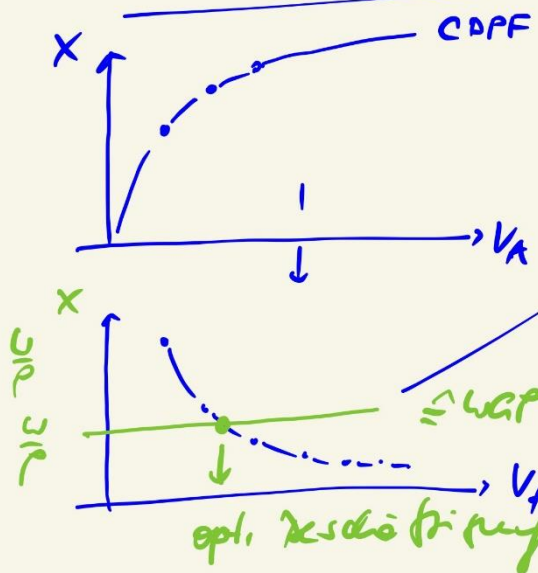 CDPF
X
V_A
↓
X
w/p
w/p
≙ WGP
V_A
opt. Beschäftigung